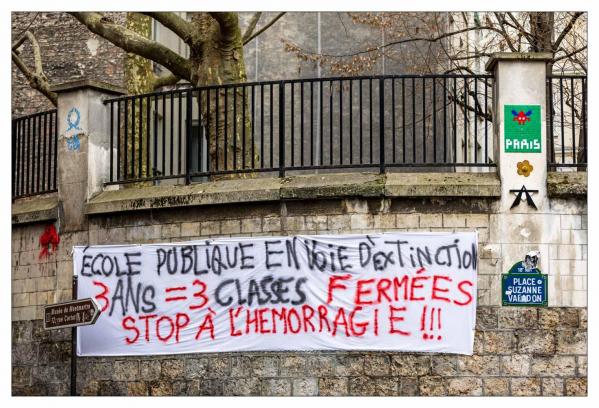 PARIS
ÉCOLE PUBLIQUE EN VOIE D'EXTINCTION
3 ANS = 3 CLASSES FERMÉES
STOP À L'HEMORRAGIE !!!
Musée de Montmartre
12, rue Cortot
PLACE
SUZANNE
VALADON